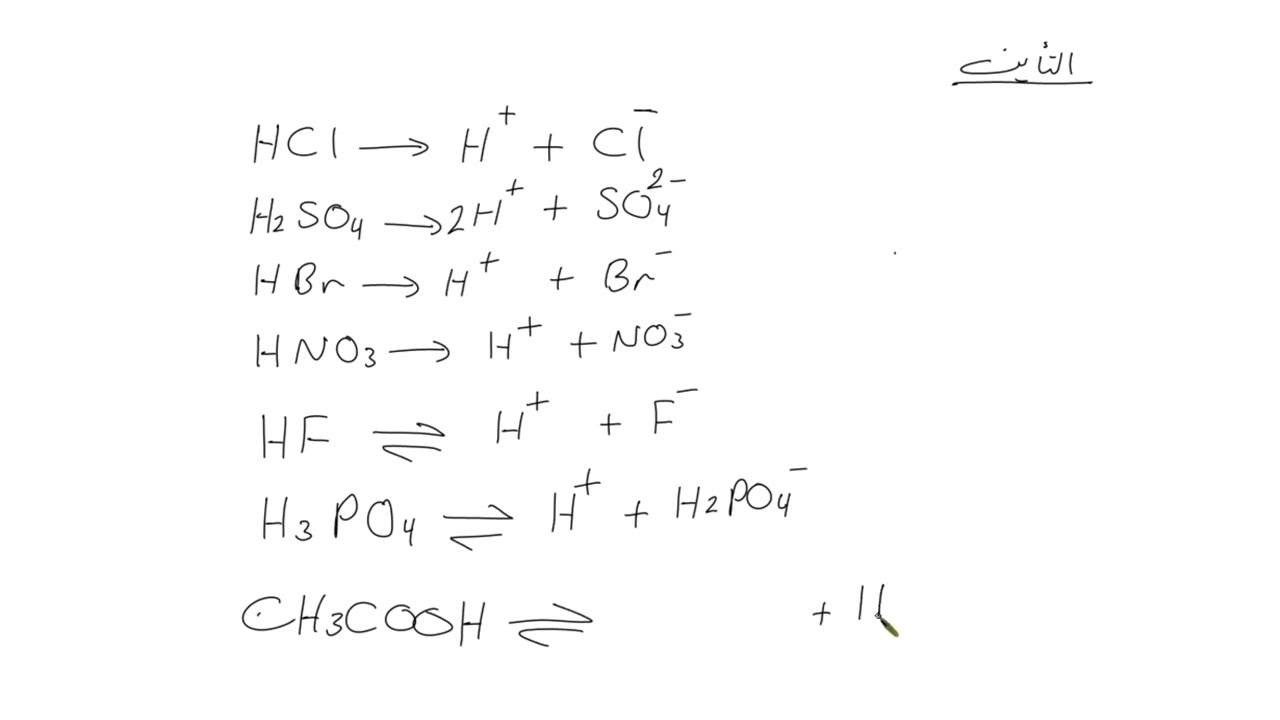 التأين
HCl → H⁺ + Cl⁻
H₂SO₄ → 2H⁺ + SO₄²⁻
HBr → H⁺ + Br⁻
HNO₃ → H⁺ + NO₃⁻
HF ⇌ H⁺ + F⁻
H₃PO₄ ⇌ H⁺ + H₂PO₄⁻
CH₃COOH ⇌ +